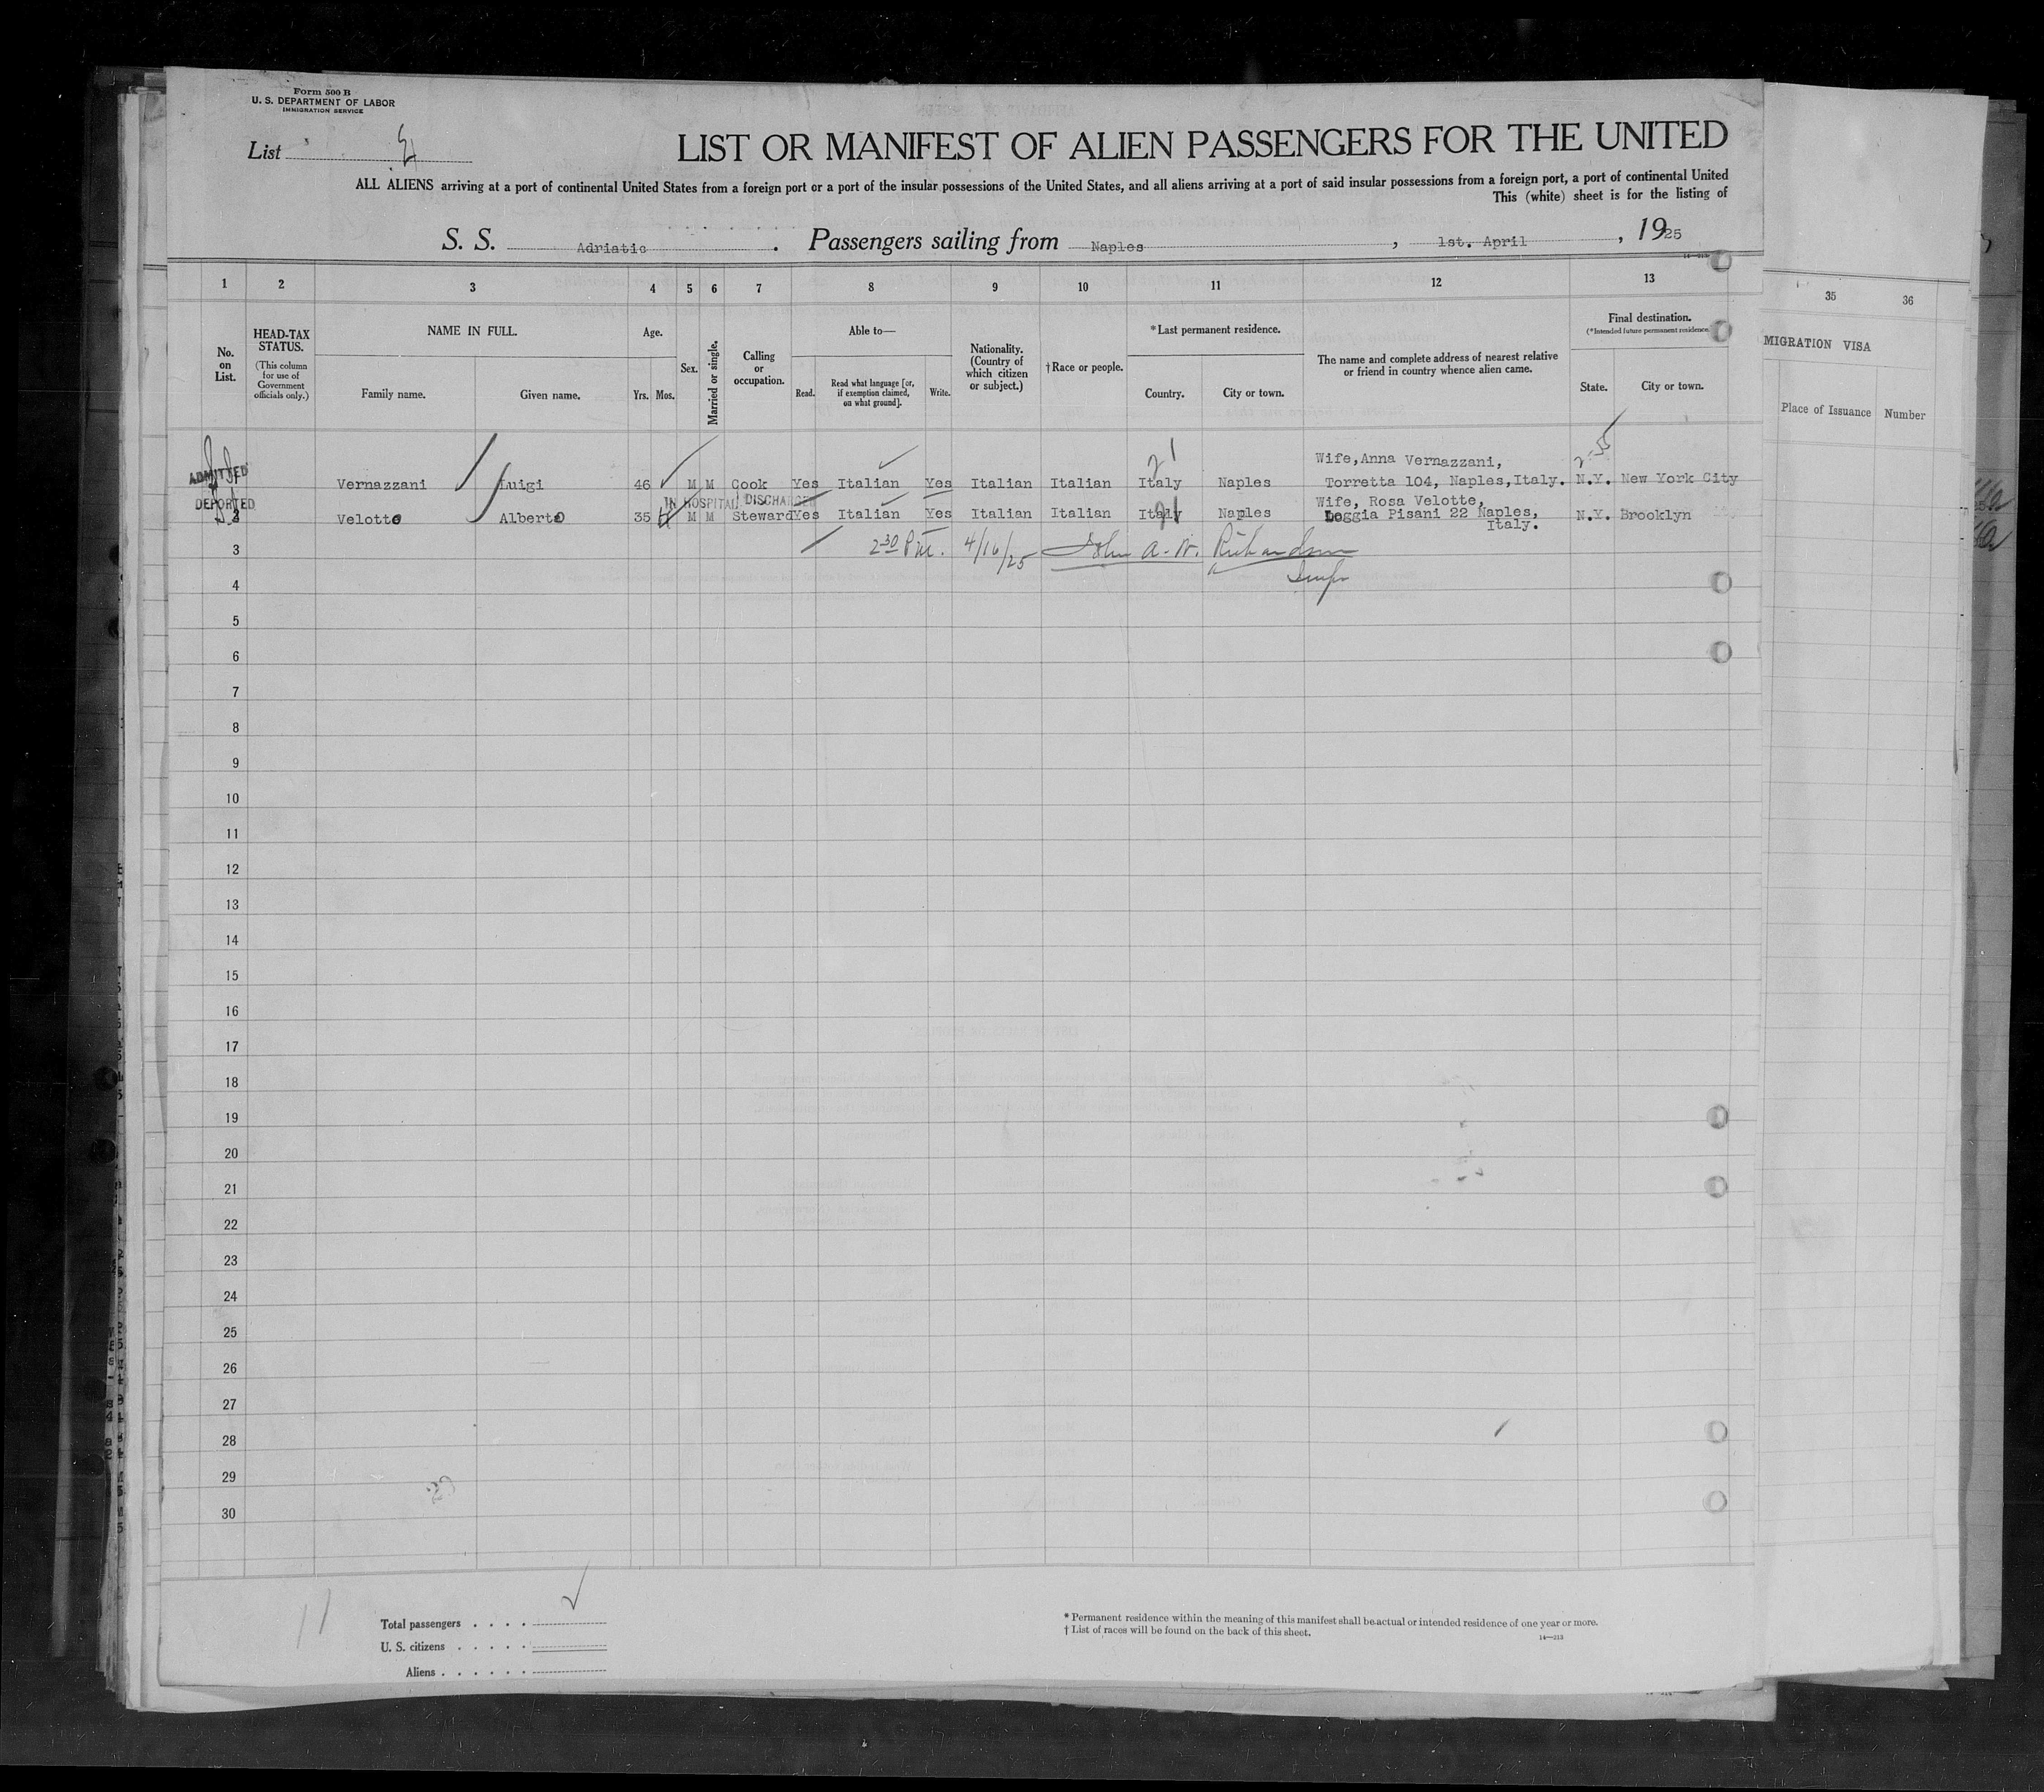 Form 500 B
U. S. DEPARTMENT OF LABOR
IMMIGRATION SERVICE
List
LIST OR MANIFEST OF ALIEN PASSENGERS FOR THE UNITED
ALL ALIENS arriving at a port of continental United States from a foreign port or a port of the insular possessions of the United States, and all aliens arriving at a port of said insular possessions from a foreign port, a port of continental United
This (white) sheet is for the listing of
S. S. Adriatic. Passengers sailing from Naples, 1st. April, 1925
1 2 3 4 5 6 7 8 9 10 11 12 13
35 36
No. on List.
HEAD-TAX STATUS.
(This column for use of Government officials only.)
NAME IN FULL.
Family name. Given name.
Age.
Yrs. Mos.
Sex.
Married or single.
Calling or occupation.
Able to—
Read. Read what language [or, if exemption claimed, on what ground]. Write.
Nationality. (Country of which citizen or subject.)
†Race or people.
*Last permanent residence.
Country. City or town.
The name and complete address of nearest relative or friend in country whence alien came.
Final destination.
(*Intended future permanent residence.)
State. City or town.
MIGRATION VISA
Place of Issuance Number
ADMITTED
Wife, Anna Vernazzani,
Vernazzani Luigi 46 M M Cook Yes Italian Yes Italian Italian Italy Naples Torretta 104, Naples, Italy. N.Y. New York City
DEPORTED IN HOSPITAL DISCHARGED
Wife, Rosa Velotte,
2 Velotto Alberto 35 M M Steward Yes Italian Yes Italian Italian Italy Naples Loggia Pisani 22 Naples, N.Y. Brooklyn
Italy.
3 2 30 P.M. 4/16/25 John A. W. Richardson
4
5
6
7
8
9
10
11
12
13
14
15
16
17
18
19
20
21
22
23
24
25
26
27
28
29
30
11
Total passengers . . . .
U. S. citizens . . . . .
Aliens . . . . . .
* Permanent residence within the meaning of this manifest shall be actual or intended residence of one year or more.
† List of races will be found on the back of this sheet.
14—213